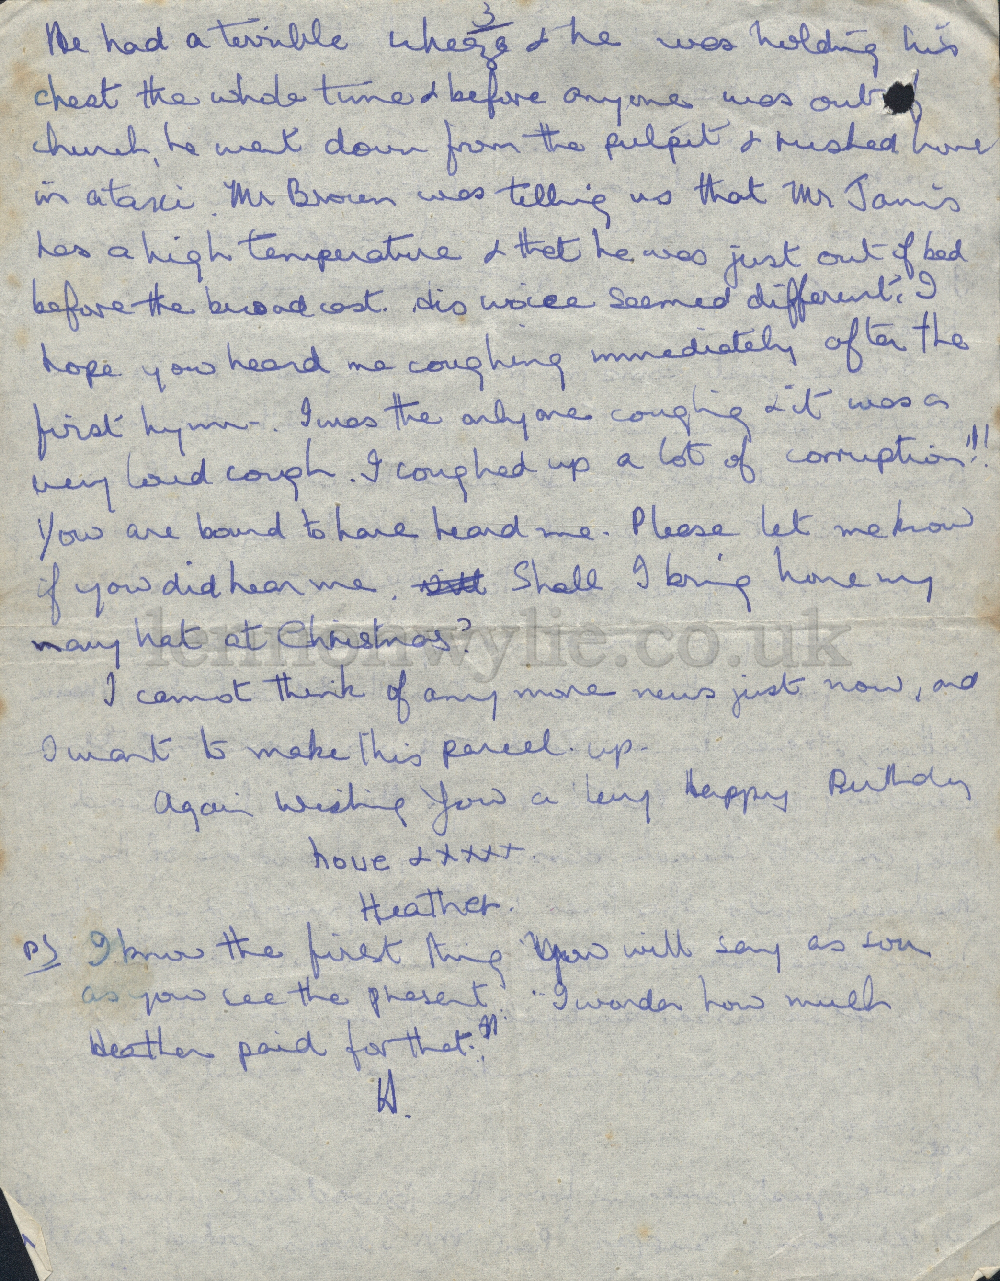 3
He had a terrible wheeze & he was holding his
chest the whole time & before anyone was out of
church, he went down from the pulpit & rushed home
in a taxi. Mr Brown was telling us that Mr Jarvis
has a high temperature & that he was just out of bed
before the broadcast. His voice seemed different. I
hope you heard me coughing immediately after the
first hymn. I was the only one coughing & it was a
very loud cough. I coughed up a lot of corruption!!!
You are bound to have heard me. Please let me know
if you did hear me. Shall I bring home my
navy hat at Christmas?
I cannot think of any more news just now, and
I want to make this parcel up.
Again Wishing You a Very Happy Birthday
Love & xxxx
Heather.
PS I know the first thing you will say as soon
as you see the present "I wonder how much
Heather paid for that."!!
H.
lennonwylie.co.uk